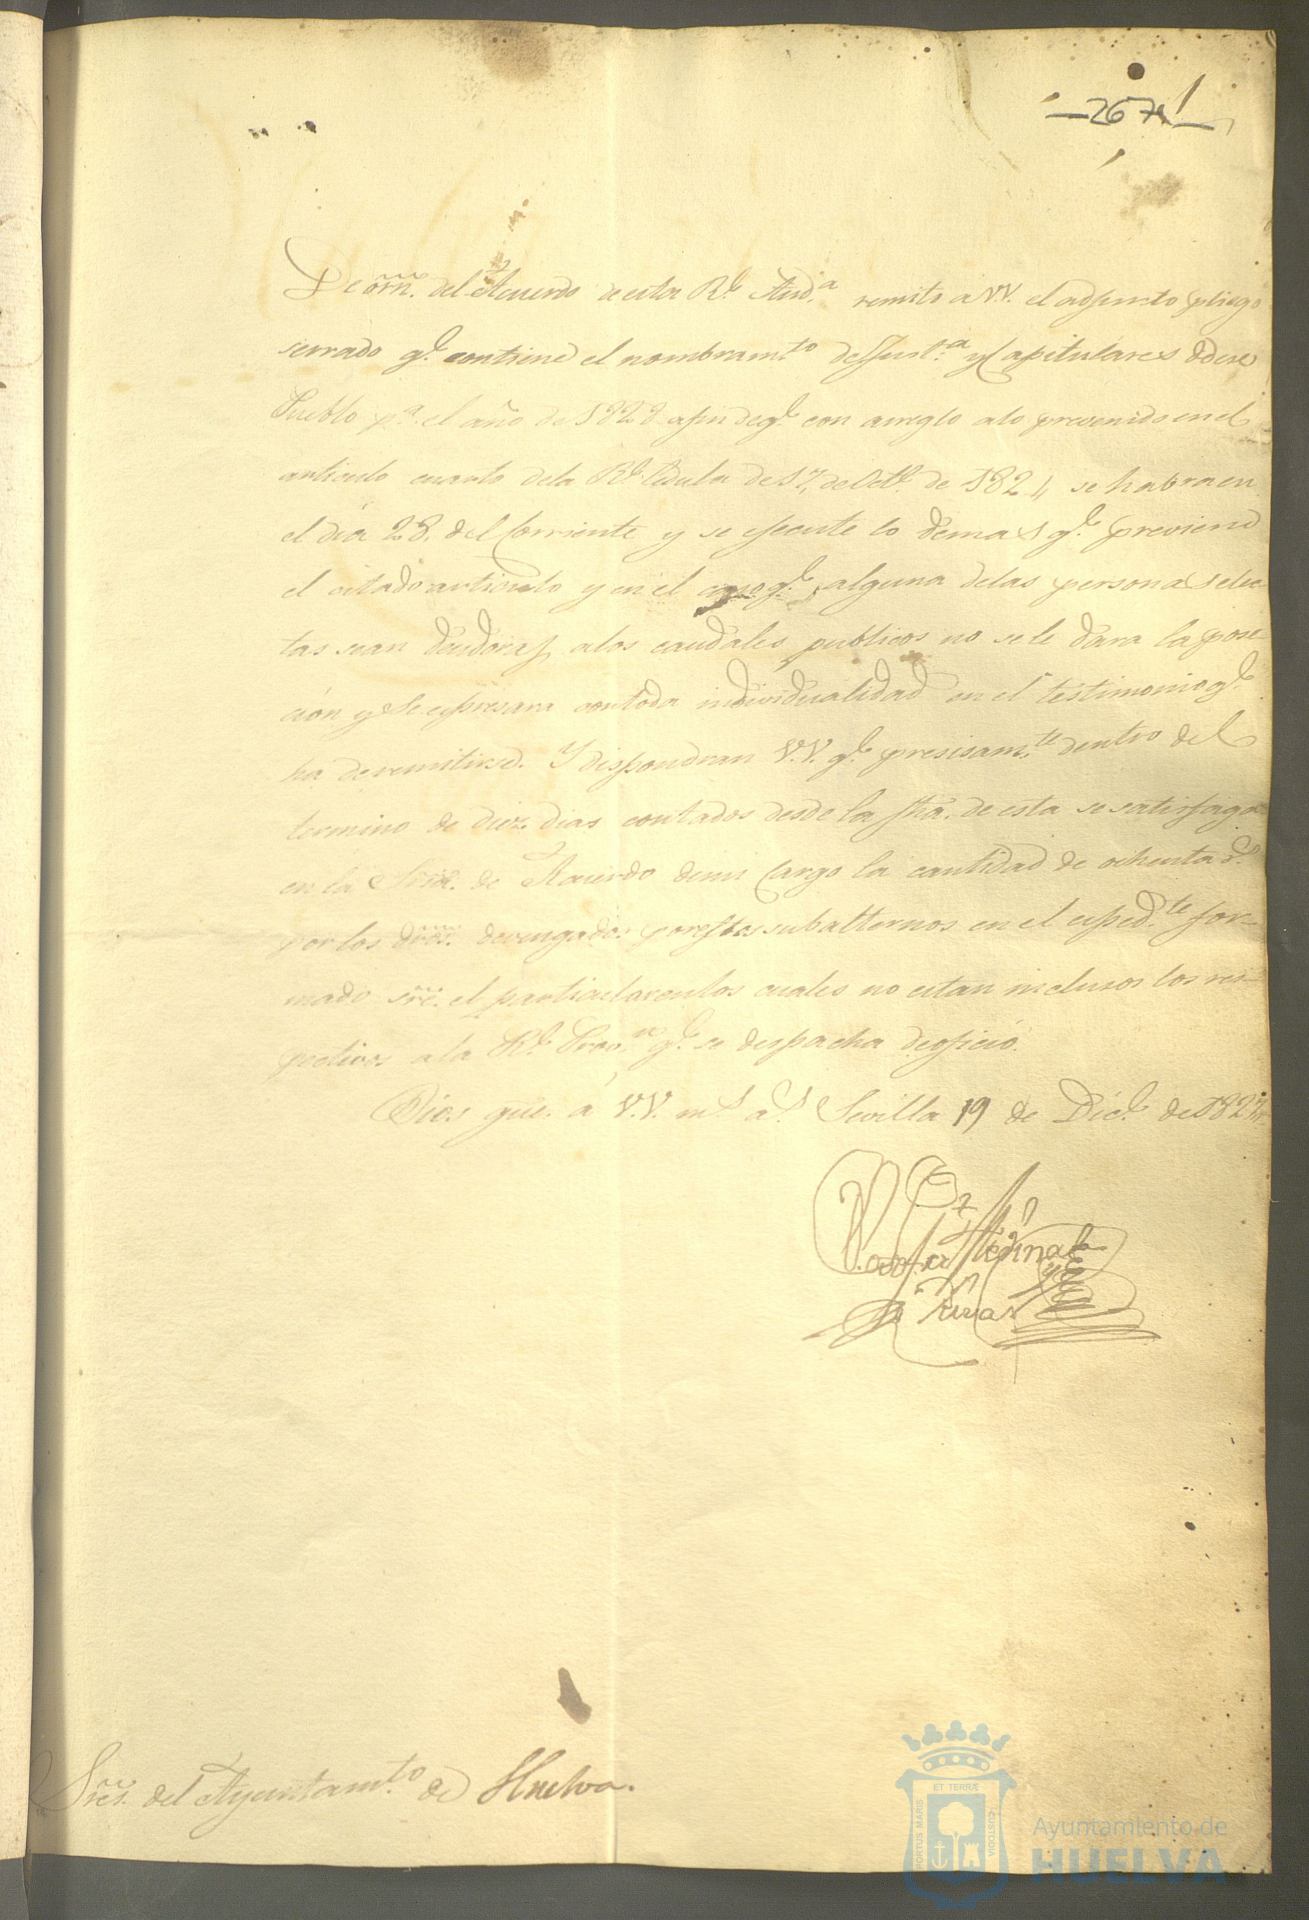 267
De orn. del Acuerdo de esta Rl. Auda. remito a V.V. el adjunto pliego
serrado ql. contiene el nombramto. de Justa. y Capitulares de ese
Pueblo pa. el año de 1828 afin de ql. con arreglo alo prevenido en el
articulo cuarto dela Rl. Cedula de 17, de Octe. de 1824, se habra en
el dia 28. del Corriente y se ejecute lo demas ql. previene
el citado articulo y en el caso ql. alguna delas personas elec-
tas sean deudoras alos caudales publicos no se le dara la pose-
ción y se espresara con toda individualidad en el testimonio ql.
ha de remitirse. Y dispondran V.V. ql. presisamte. dentro del
termino de diez dias contados desde la fha. de esta se satisfaga
en la Sria. de Acuerdo demi Cargo la cantidad de ochenta rs.
por los dros. devengados por estos subalternos en el espedte. for-
mado sre. el particular en los cuales no estan inclusos los res-
pectivos ala Rl. Provon. ql. se despacha de oficio.
Dios gue. á V.V. ms. as. Sevilla 19 de Dice. de 1827,,
Medina
y
Rivas
Sres. del Ayuntamto. de Huelva.
PORTUS MARIS
ET TERRÆ
CUSTODIA
Ayuntamiento de
HUELVA